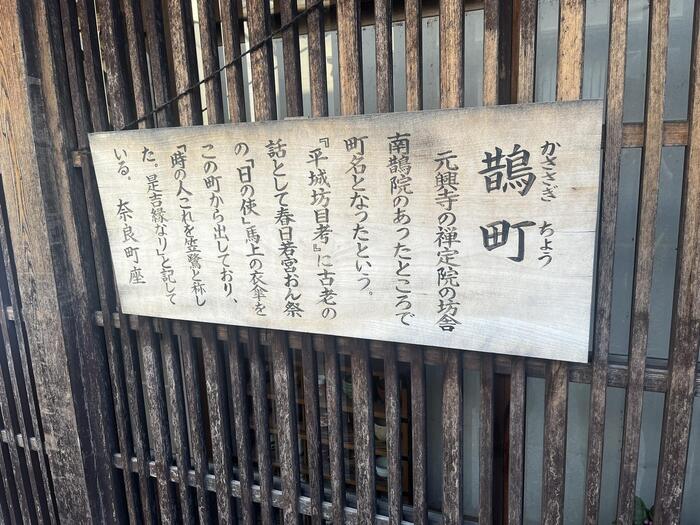 かささぎ ちょう
鵲町
元興寺の禅定院の坊舎
南鵲院のあったところで
町名となったという。
『平城坊目考』に古老の
話として春日若宮おん祭
の「日の使」馬上の衣傘を
この町から出しており、
「時の人これを笠鷺と称し
た。是吉縁なり」と記して
いる。 奈良町座